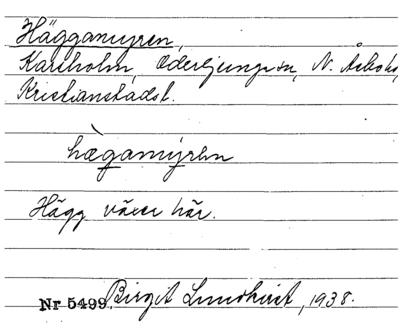 Häggamyren,
Karsholm, Oderljunga sn, N. Åsbo hd,
Kristianstads l.
hægamýren
Hägg växer här.
Nr 5499, Birgit Lundkvist, 1938.